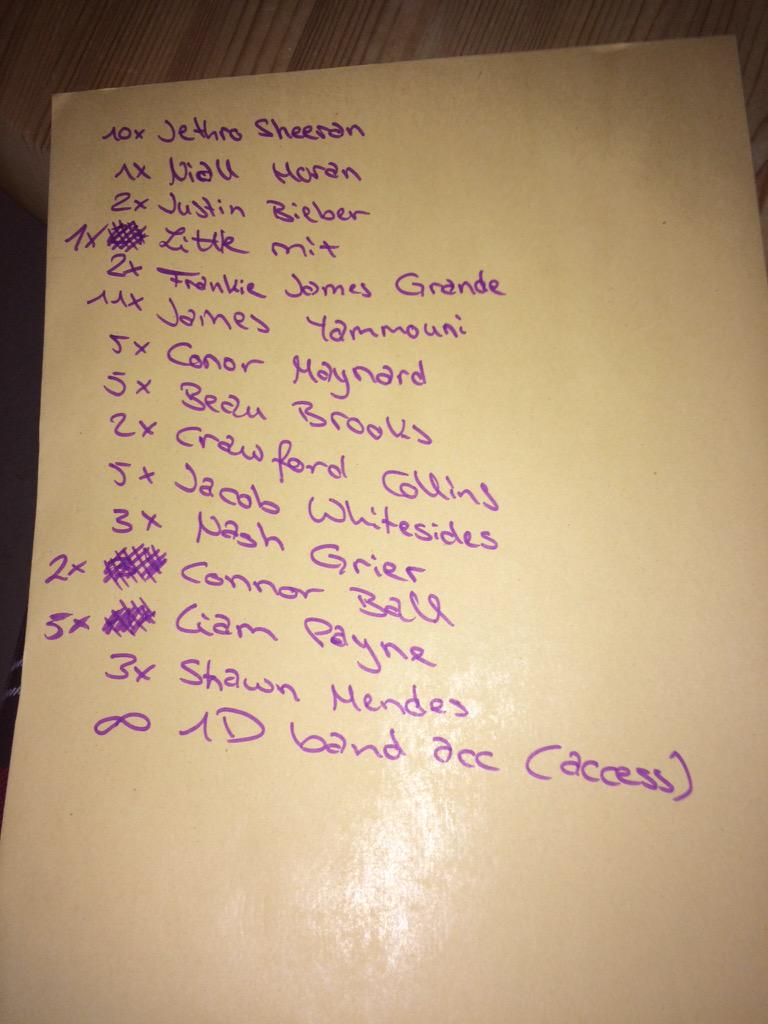 10x Jethro Sheeran
1x Niall Horan
2x Justin Bieber
1x Little mix
2x Frankie James Grande
11x James Yammouni
5x Conor Maynard
5x Beau Brooks
2x Crawford Collins
5x Jacob Whitesides
3x Nash Grier
2x Connor Ball
5x Liam Payne
3x Shawn Mendes
∞ 1D band acc (access)